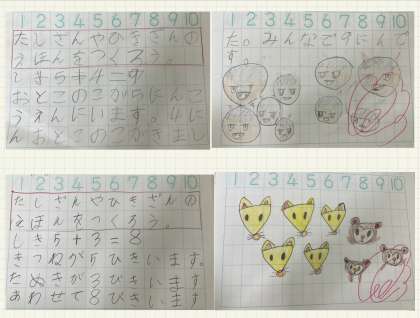 1 2 3 4 5 6 7 8 9 10
たしざんやひきざんの
えほんをつくろう。
しき5+4=9
おとこのこが5にんこ
うえんにいます。4に
んおとこのこがきまし
1 2 3 4 5 6 7 8 9 10
た。みんなで9にんで
す。
1 2 3 4 5 6 7 8 9 10
たしざんやひきざんの
えほんをつくろう。
しき5+3=8
きつねが5ひきいます。
たぬきが3びきいます
あわせて8ぴきいます
1 2 3 4 5 6 7 8 9 10